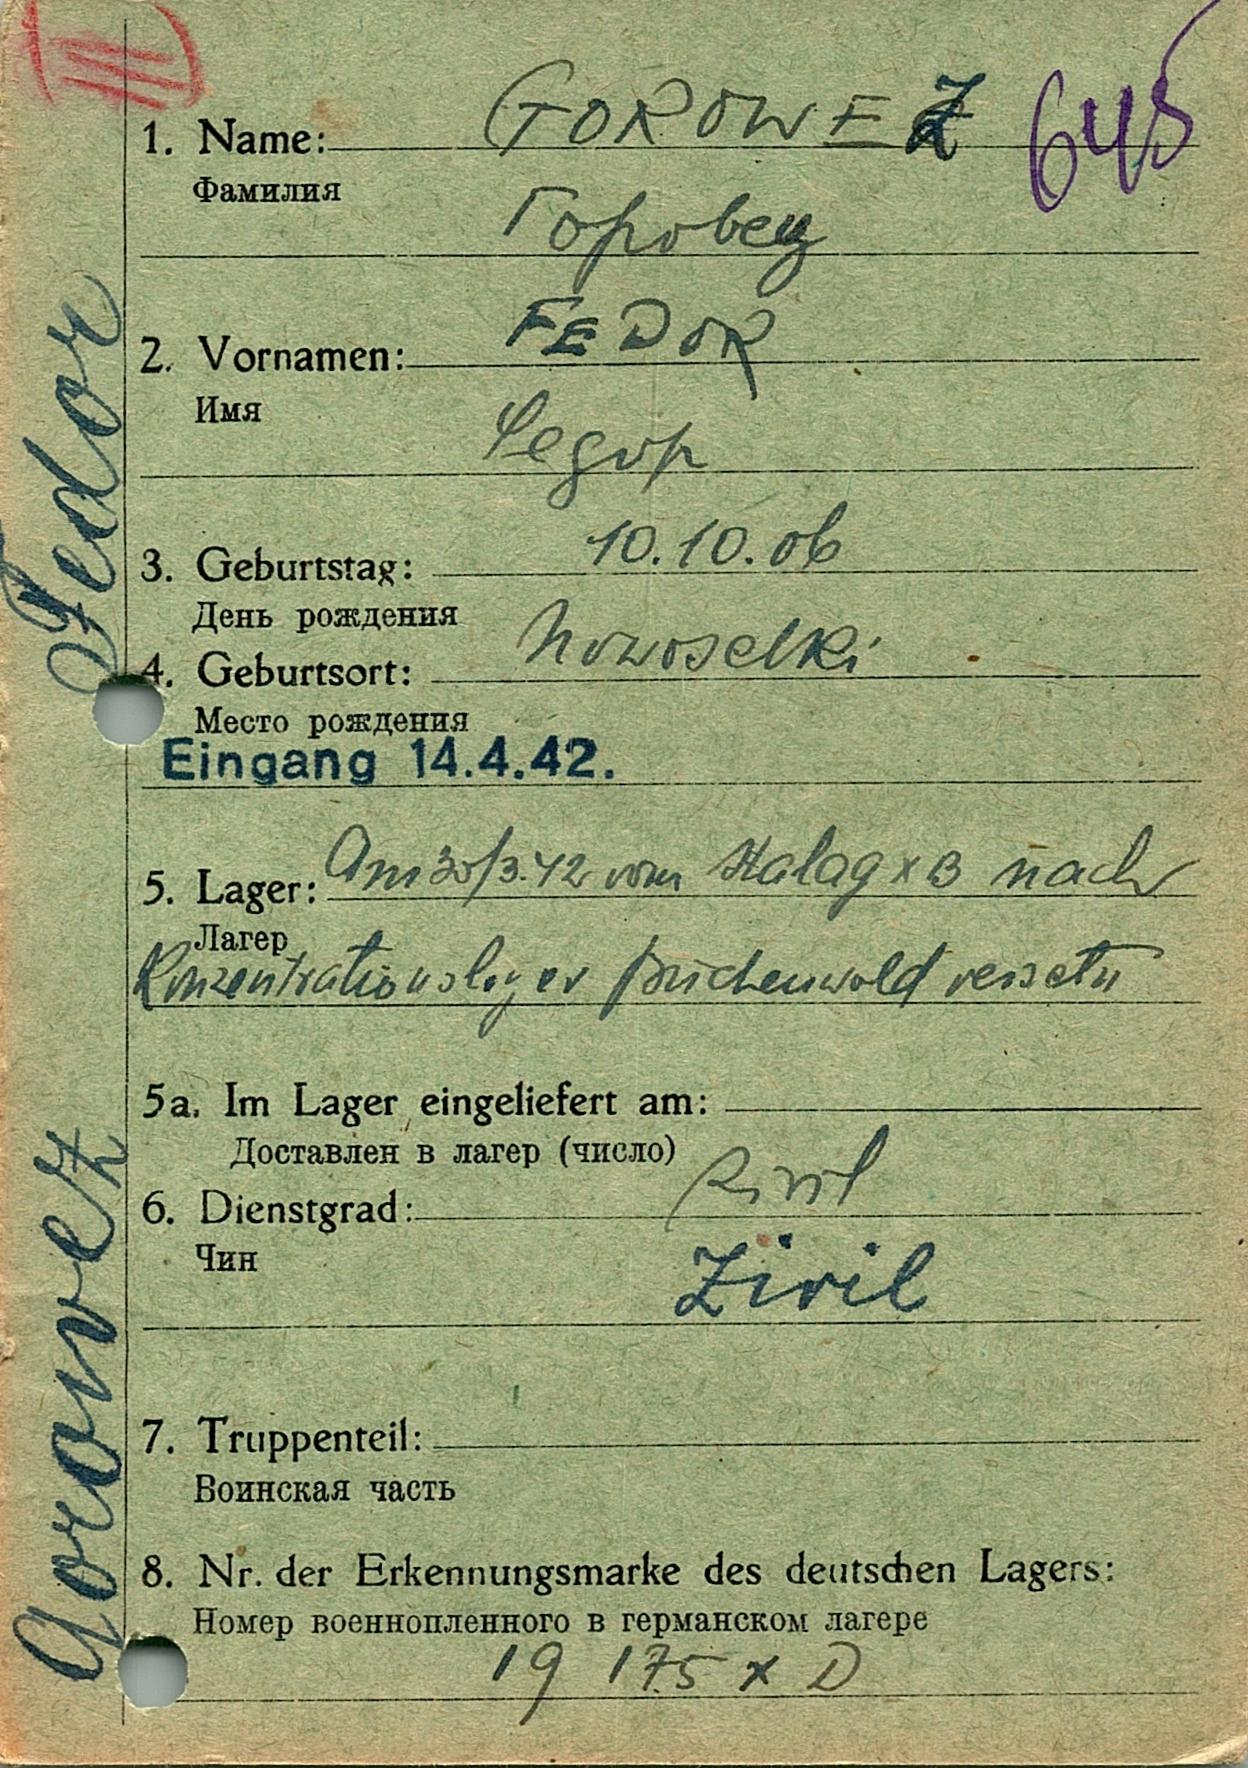 1. Name: GOROWEZ 645
Фамилия
Горовец
2. Vornamen: FEDOR
Имя
Федор
3. Geburtstag: 10.10.06
День рождения
4. Geburtsort: Nowoselki
Место рождения
Eingang 14.4.42.
5. Lager: Am 30/3.42 vom Stalag X B nach
Лагер
Konzentrationslager Buchenwald versetzt
5a. Im Lager eingeliefert am:
Доставлен в лагер (число)
6. Dienstgrad: Zivil
Чин
Zivil
7. Truppenteil:
Воинская часть
8. Nr. der Erkennungsmarke des deutschen Lagers:
Номер военнопленного в германском лагере
19 175 X D
Gorowetz Fedor